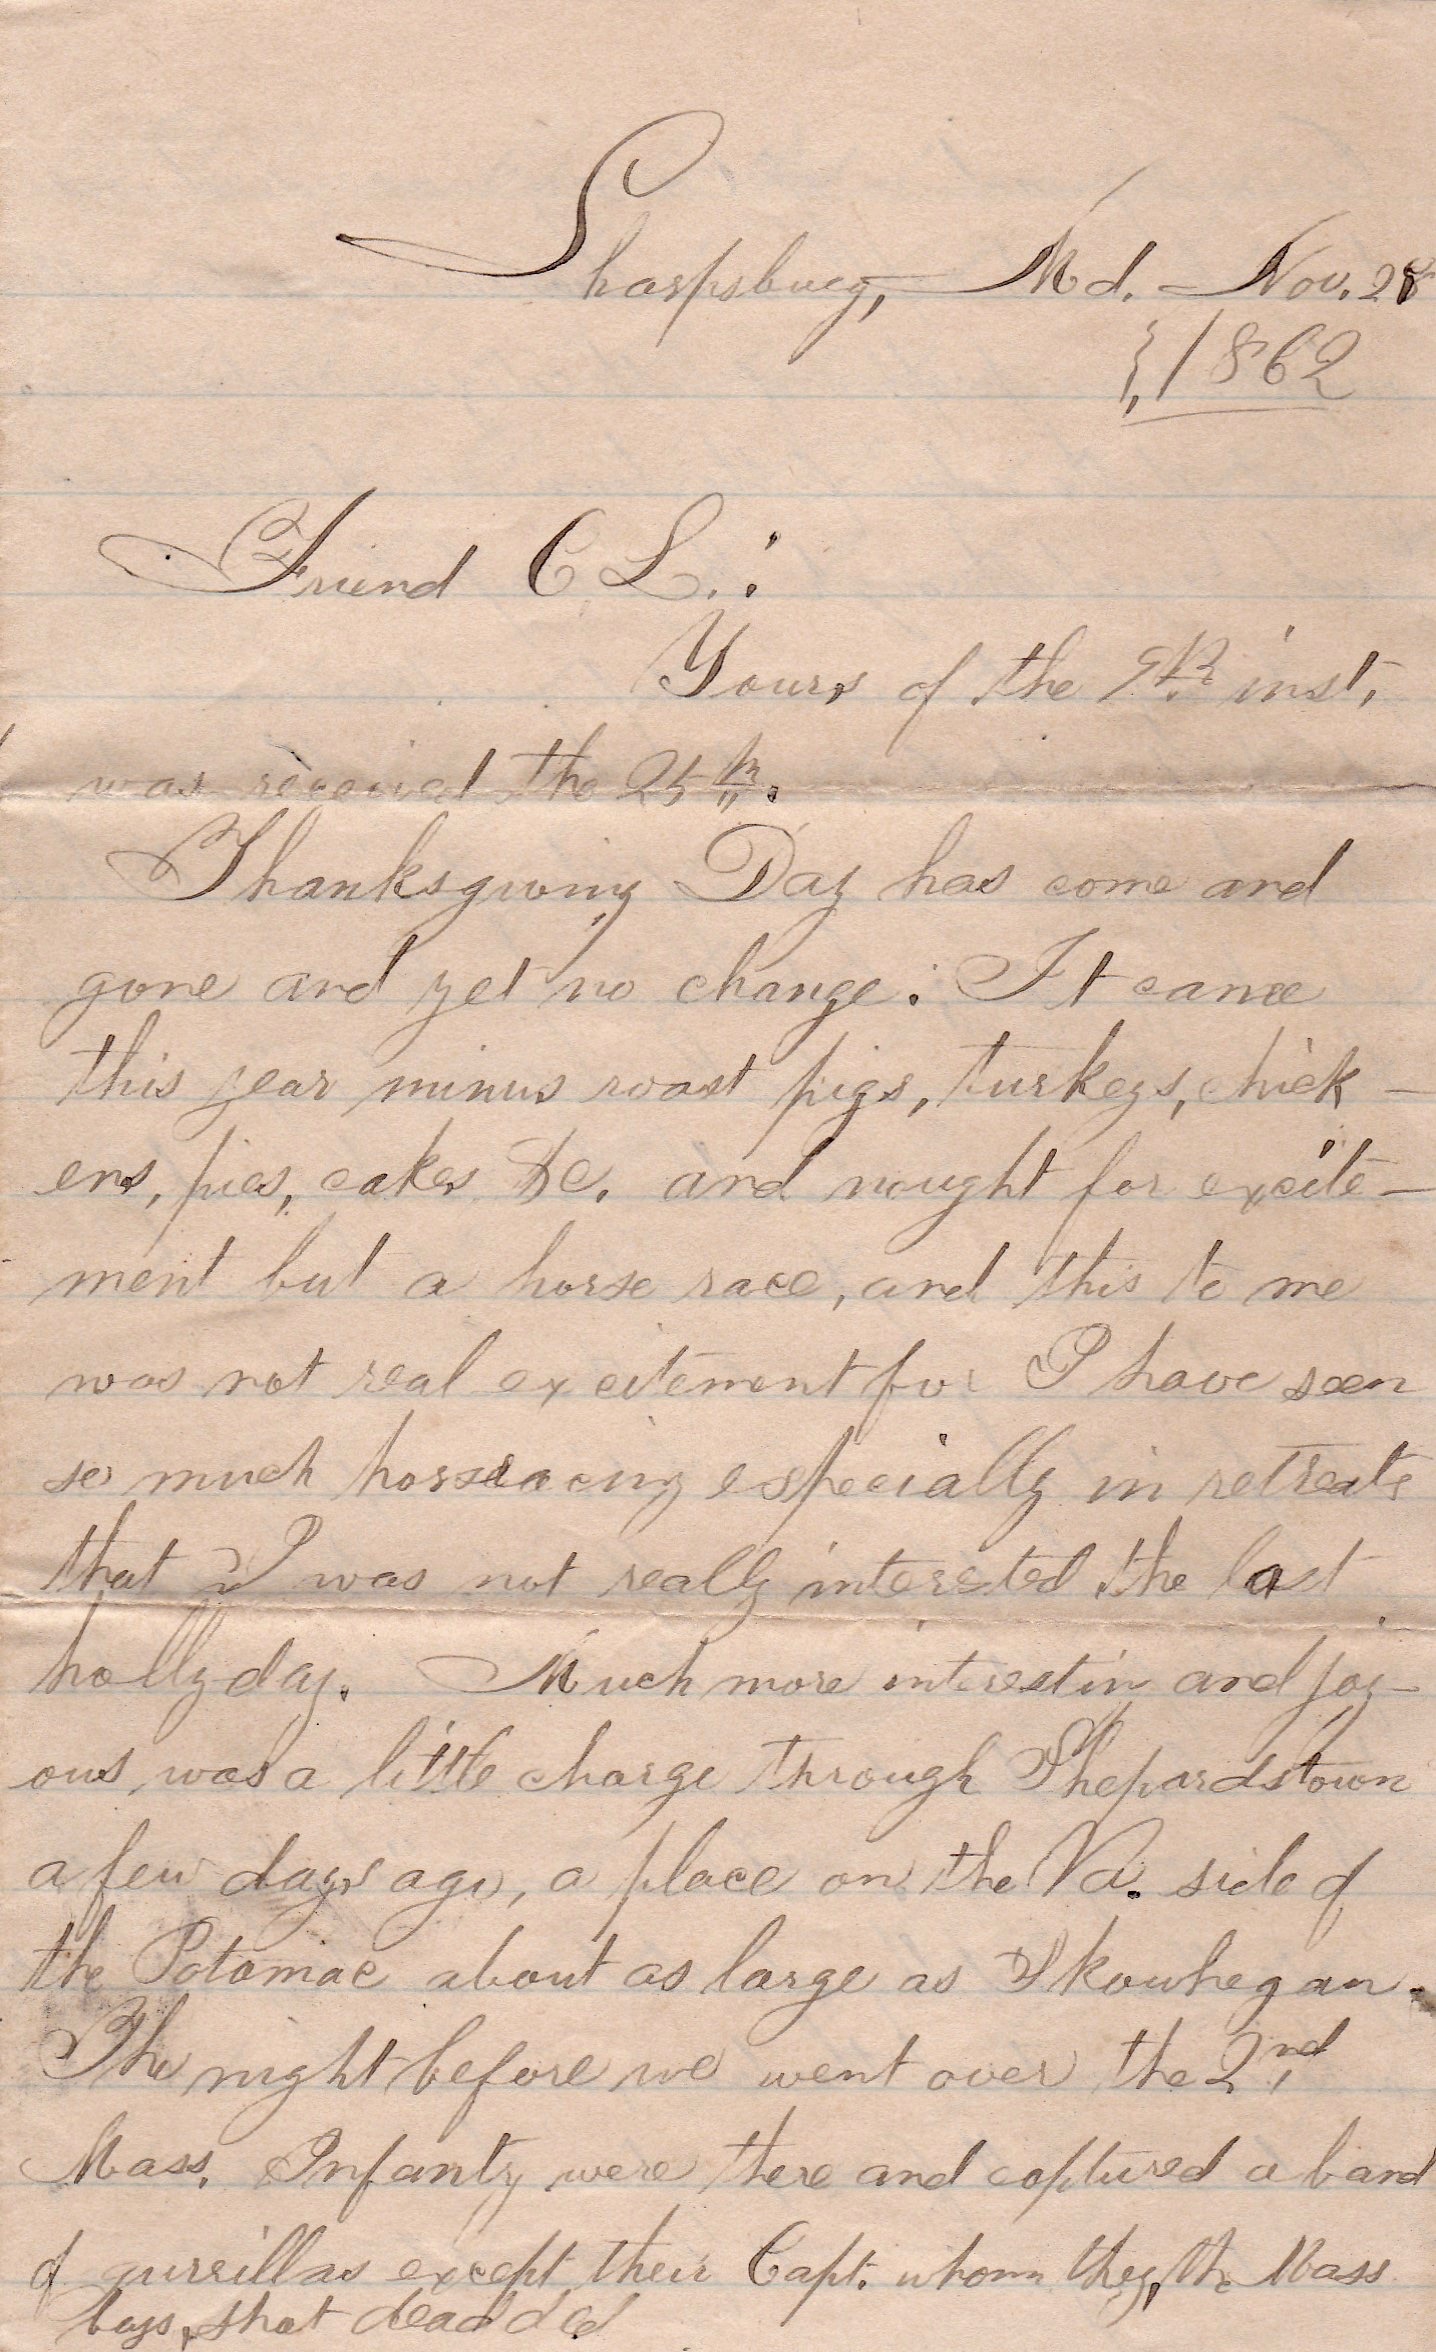 Sharpsburg, Md. - Nov. 28
1862
Friend C. L. :
Yours of the 9th inst,
was received the 25th.
Thanksgiving Day has come and
gone and yet no change. It came
this year minus roast pigs, turkeys, chick-
ens, pies, cakes &c. and nought for excite-
ment but a horse race, and this to me
was not real excitement for I have seen
so much horseracing especially in retreats
that I was not really interested the last
hollyday. Much more interesting and joy-
ous was a little charge through Shepardstown
a few days ago, a place on the Va. side of
the Potomac about as large as Skowhegan.
The night before we went over the 2nd
Mass. Infanty were there and captured a band
of gurrillas except their Capt. whom they, the Mass
boys, shot dead